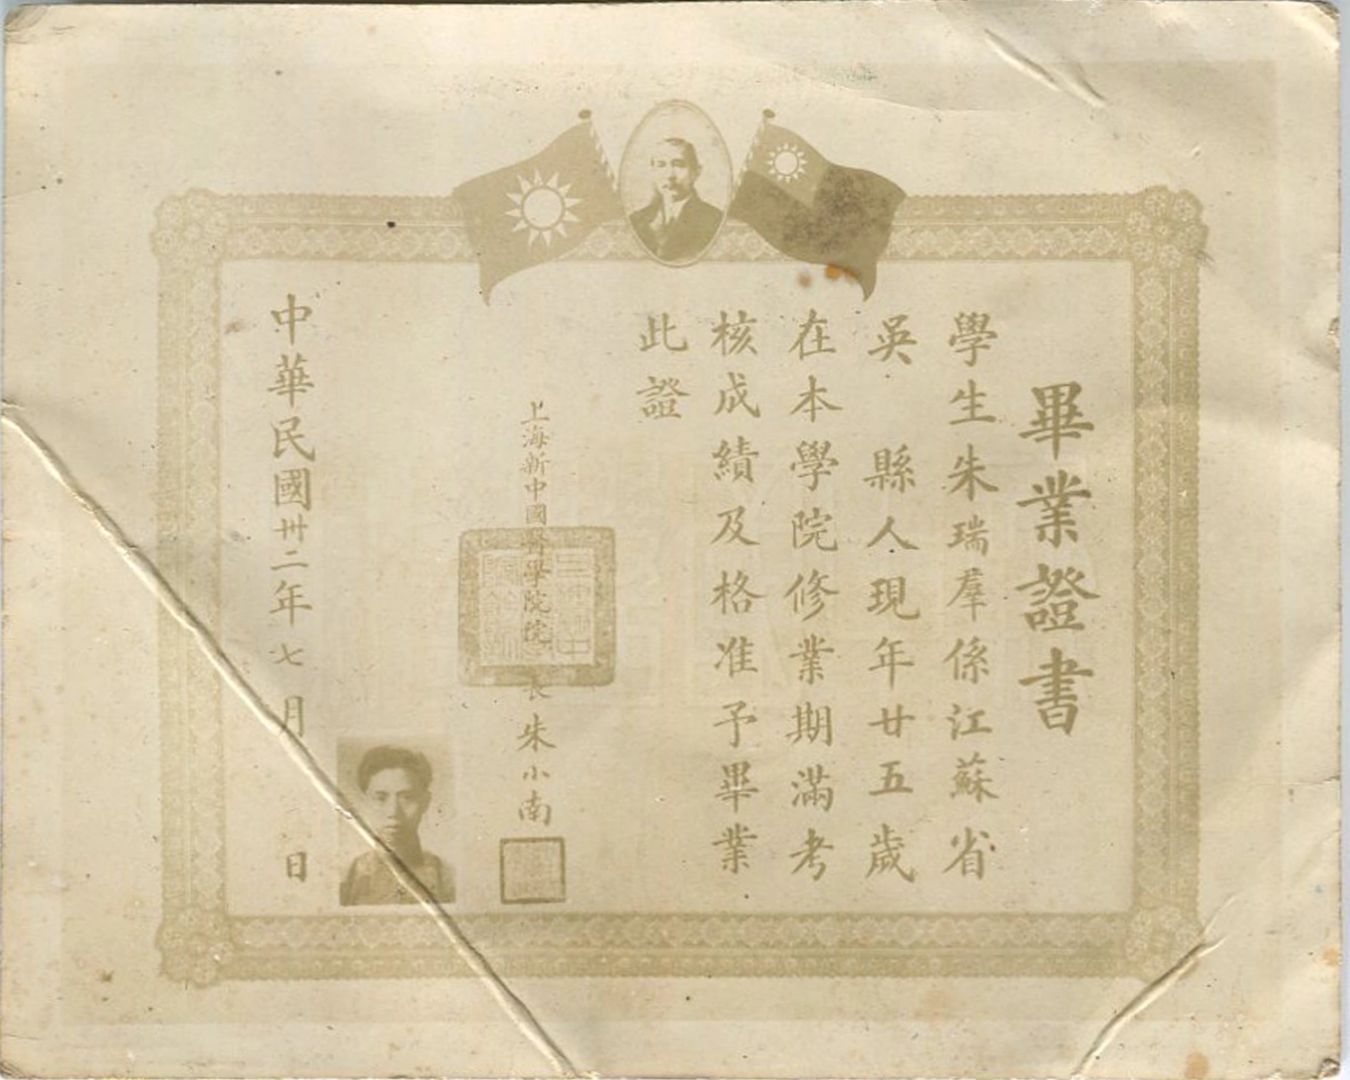 畢業證書
學生朱瑞羣係江蘇省
吳縣人現年廿五歲
在本學院修業期滿考
核成績及格准予畢業
此證
上海新中國醫學院院長朱小南
中華民國卅二年七月日